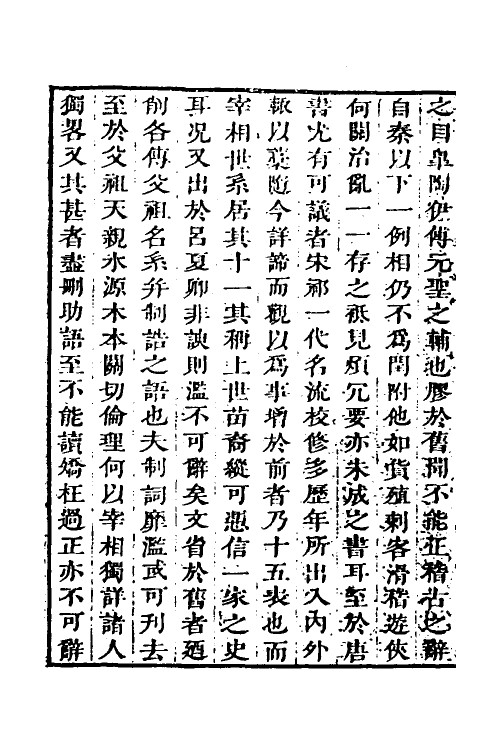 之目臯陶伊傅元聖之輔也膠於舊聞不能正稽古之辭
自秦以下一例相仍不爲閏附他如貨殖刺客滑稽遊俠
何關治亂一一存之秪見煩冗要亦未成之書耳至於唐
書尤有可議者宋祁一代名流校修多歷年所出入內外
輙以藳隨今詳諦而觀以爲事增於前者乃十五表也而
宰相世系居其十一其稱上世苗裔縱可憑信一家之史
耳况又出於呂夏卿非諛則濫不可辭矣文省於舊者廼
削各傳父祖名系弁制誥之語也夫制詞靡濫或可刊去
至於父祖天親水源木本關切倫理何以宰相獨詳諸人
獨畧又其甚者盡刪助語至不能讀矯枉過正亦不可辭